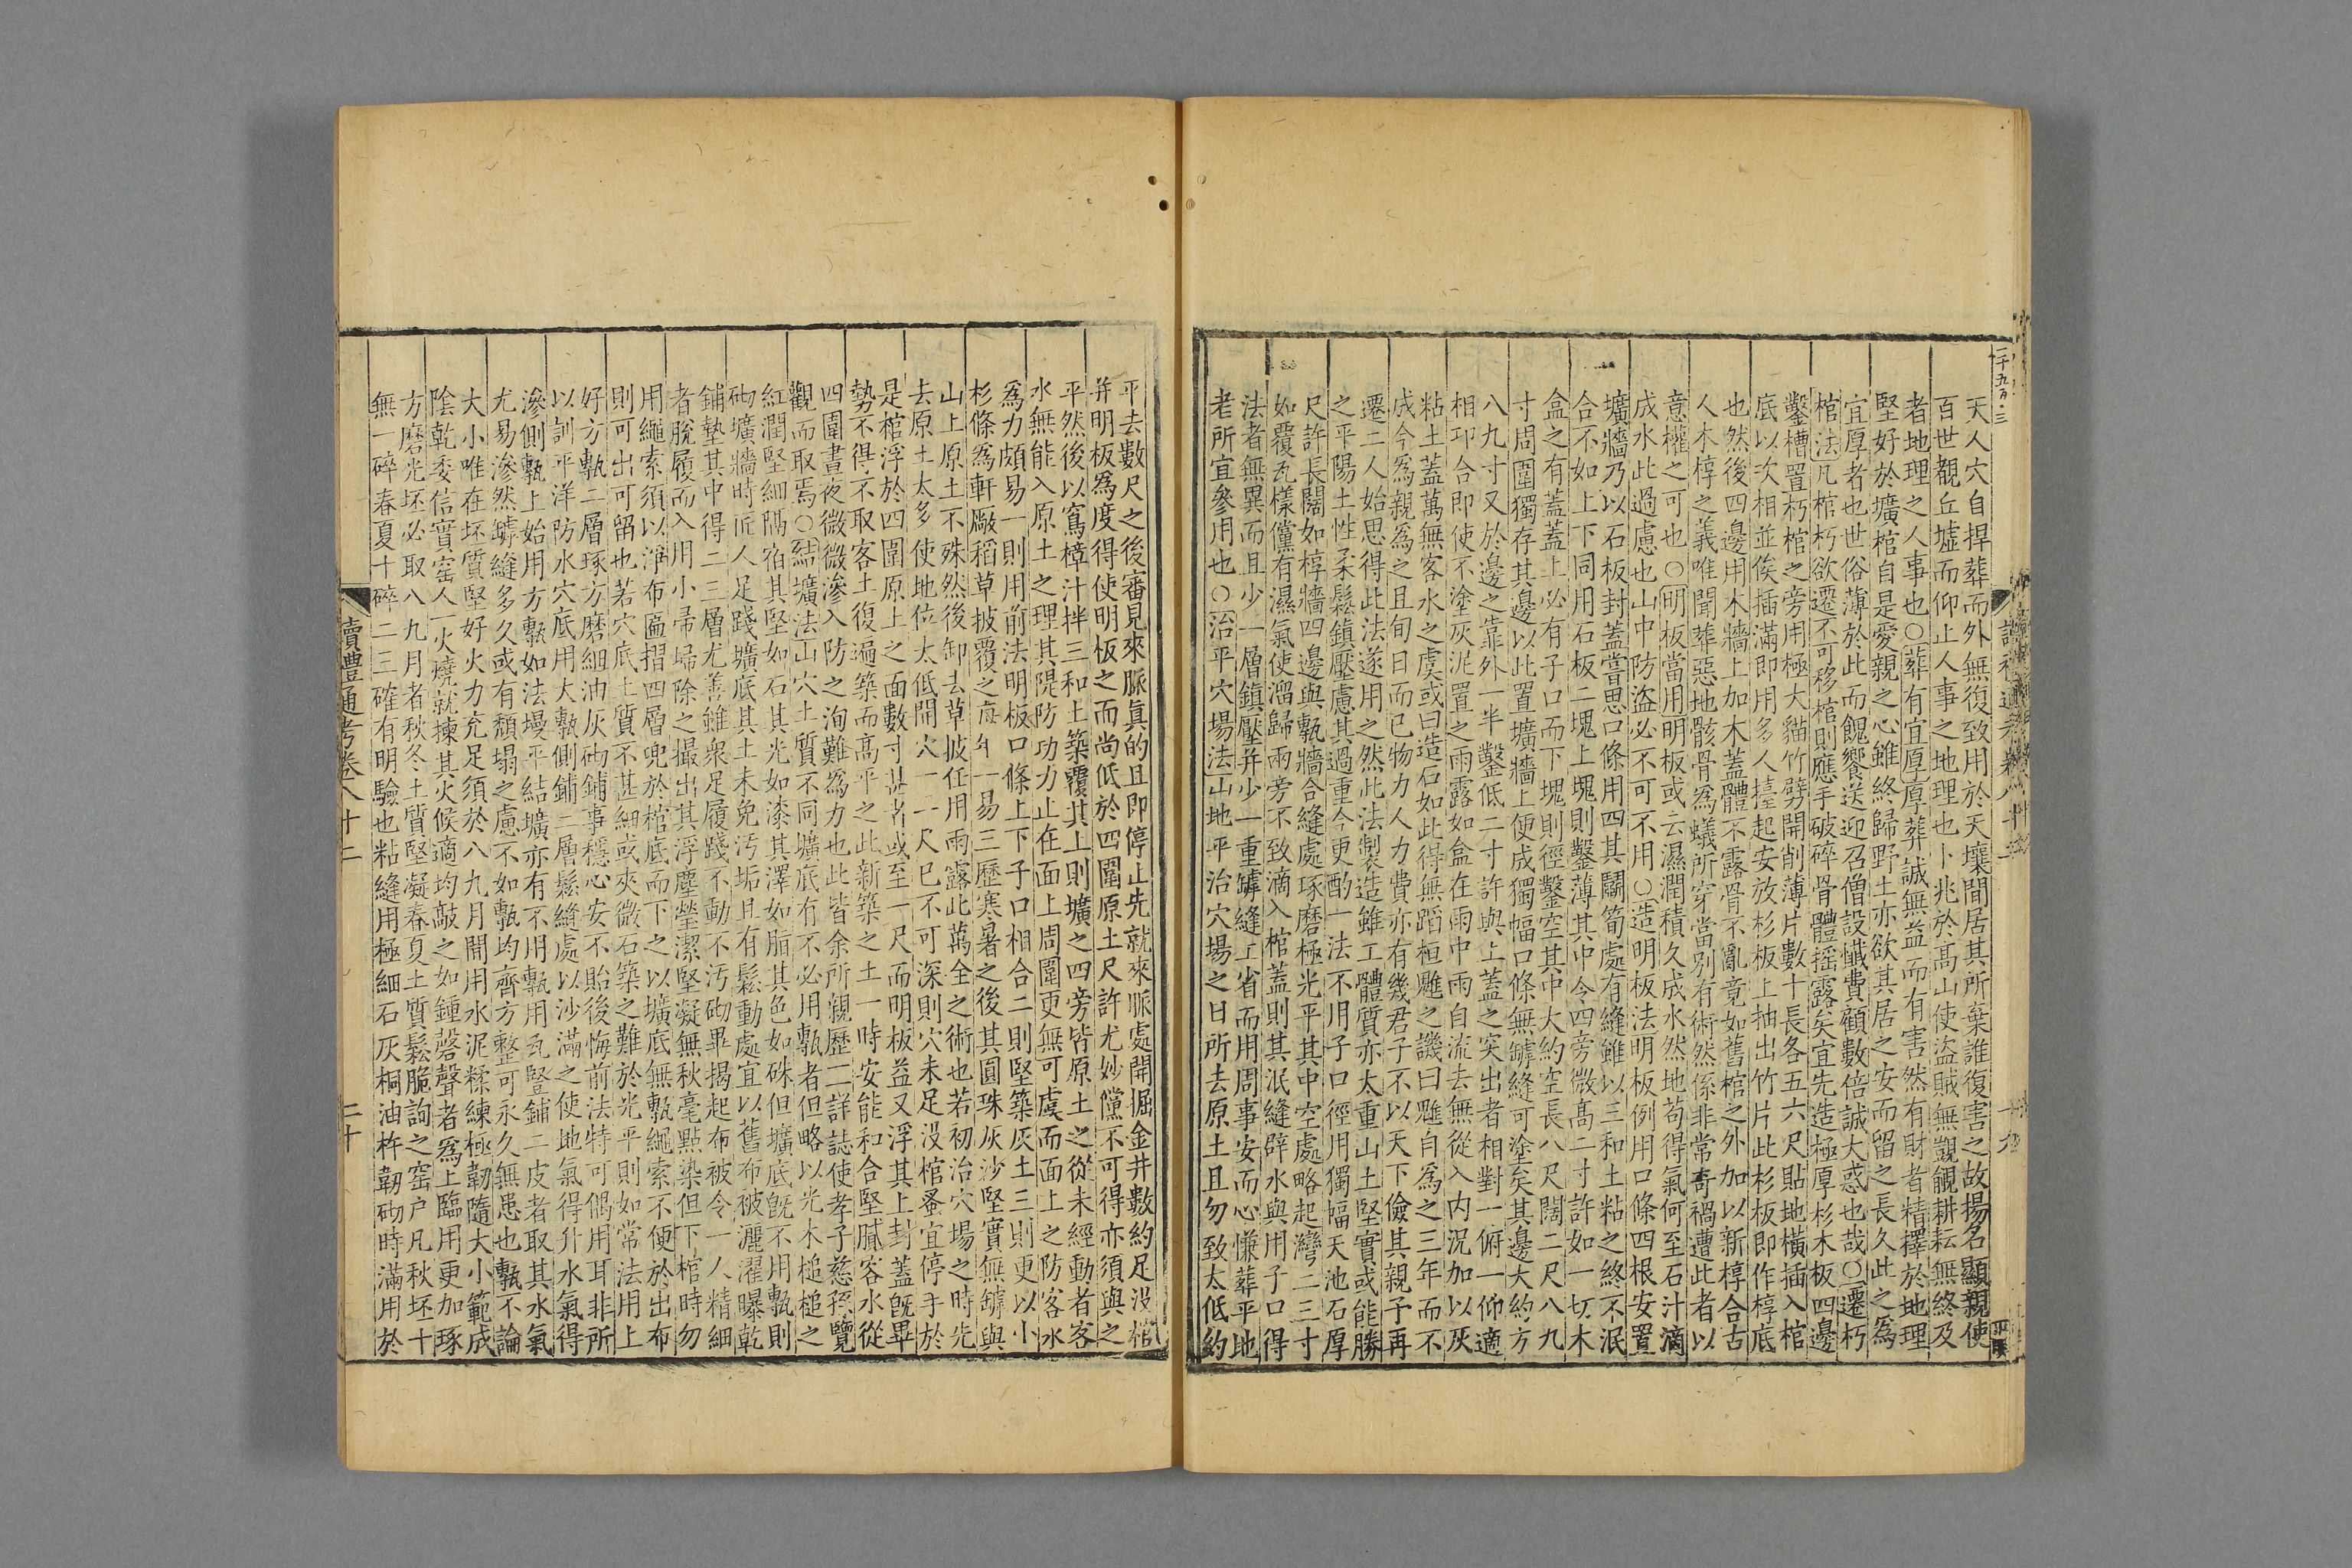 天人穴自捍葬而外無復致用於天壤間居其所棄誰復害之故揚名顯親使
百世觀丘墟而仰止人事之地理也卜兆於高山使盜賊無覬覦耕耘無終及
者地理之人事也○葬有宜厚厚葬誠無益而有害然有財者精擇於地理
堅好於壙棺自是愛親之心雖終歸野土亦欲其居之安而留之長久此之為
宜厚者也世俗薄於此而餽饗送迎召僧設懺費顧數倍誠大惑也哉○遷朽
棺法凡棺朽欲遷不可移棺則應手破碎骨體搖露矣宜先造極厚杉木板四邊
鑿槽置朽棺之旁用極大貓竹劈開削薄片數十長各五六尺貼地橫插入棺
底以次相並俟插滿即用多人擡起安放杉板上抽出竹片此杉板即作椁底
也然後四邊用木牆上加木蓋體不露骨不亂竟如舊棺之外加以新椁合古
人木椁之義唯聞葬惡地骸骨為蟻所穿當別有術然係非常奇禍遭此者以
意權之可也○明板當用明板或云濕潤積久成水然地苟得氣何至石汁滴
成水此過慮也山中防盜必不可不用○造明板法明板例用口條四根安置
壙牆乃以石板封蓋嘗思口條用四其鬭筍處有縫雖以三和土粘之終不泯
合不如上下同用石板二塊上塊則鑿薄其中令四旁微高二寸許如一切木
盒之有蓋蓋上必有子口而下塊則徑鑿空其中大約空長八尺闊二尺八九
寸周圍獨存其邊以此置壙牆上便成獨幅口條無罅縫可塗矣其邊大約方
八九寸又於邊之靠外一半鑿低二寸許與上蓋之突出者相對一俯一仰適
相卬合即使不塗灰泥置之雨露如盒在雨中雨自流去無從入內況加以灰
粘土蓋萬無客水之虞或曰造石如此得無蹈桓魋之譏曰魋自為之三年而不
成今為親為之且旬日而已物力人力費亦有幾君子不以天下儉其親予再
遷二人始思得此法遂用之然此法製造雖工體質亦太重山土堅實或能勝
之平陽土性柔鬆鎮壓慮其過重今更酌一法不用子口徑用獨幅天池石厚
尺許長闊如椁牆四邊與甎牆合縫處琢磨極光平其中空處略起灣二三寸
如覆瓦樣儻有濕氣使溜歸兩旁不致滴入棺蓋則其泯縫辟水與用子口得
法者無異而且少一層鎮壓并少一重罅縫工省而用周事安而心慊葬平地
老所宜參用也○治平穴場法山地平治穴場之日所去原土且勿致太低約
平去數尺之後審見來脈真的且即停止先就來脈處開掘金井數約足没棺
并明板為度得使明板之而尚低於四圍原土尺許尤妙儻不可得亦須與之
平然後以窵樟汁拌三和土築覆其上則壙之四旁皆原土之從未經動者客
水無能入原土之理其隄防功力止在面上周圍更無可虞而面上之防客水
為力頗易一則用前法明板口條上下子口相合二則堅築灰土三則更以小
杉條為軒厰稻草披覆之 年一易三歷寒暑之後其圓珠灰沙堅實無罅與
山上原土不殊然後卸去草披任用雨露此萬全之術也若初治穴場之時先
去原土太多使地位太低開穴一二尺已不可深則穴未足没棺蚤宜停手於
是棺浮於四圍原上之面數寸甚者或至一尺而明板益又浮其上封蓋既畢
勢不得不取客土復遍築而高平之此新築之土一時安能和合堅膩客水從
四圍晝夜微微滲入防之洵難為力也此皆余所親歷一二詳誌使孝子慈孫覽
觀而取焉○結壙法山穴土質不同壙底有不必用甎者但略以光木槌槌之
紅潤堅細隔宿其堅如石其光如漆其澤如脂其色如硃但壙底既不用甎則
砌壙牆時匠人足踐壙底其土未免汚垢且有鬆動處宜以舊布被灑濯曝乾
鋪墊其中得二三層尤善雖衆足履踐不動不汚砌畢揭起布被令一人精細
者脫履而入用小帚埽除之撮出其浮塵瑩潔堅凝無秋毫點染但下棺時勿
用繩索須以淨布匾摺四層兜於棺底而下之以壙底無甎繩索不便於出布
則可出可留也若穴底土質不甚細或夾微石築之難於光平則如常法用上
好方甎二層琢方磨細油灰砌鋪事穩心安不貽後悔前法特可偶用耳非所
以訓平洋防水穴底用大甎側鋪二層鬆縫處以沙滿之使地氣得升水氣得
滲側甎上始用方甎如法墁平結壙亦有不用甎用瓦豎鋪二皮者取其水氣
尤易滲然罅縫多久或有頹塌之慮不如甎均齊方整可永久無患也甎不論
大小唯在坯質堅好火力充足須於八九月間用水泥糅練極韌隨大小範成
陰乾委信實窑人一火燒就揀其火候適均敲之如鍾磬聲者為上臨用更加琢
方磨光坯必取八九月者秋冬土質堅凝春夏土質鬆脆詢之窑户凡秋坯十
無一碎春夏十碎二三確有明驗也粘縫用極細石灰桐油杵韌砌時滿用於
讀禮通考卷八十二
二十